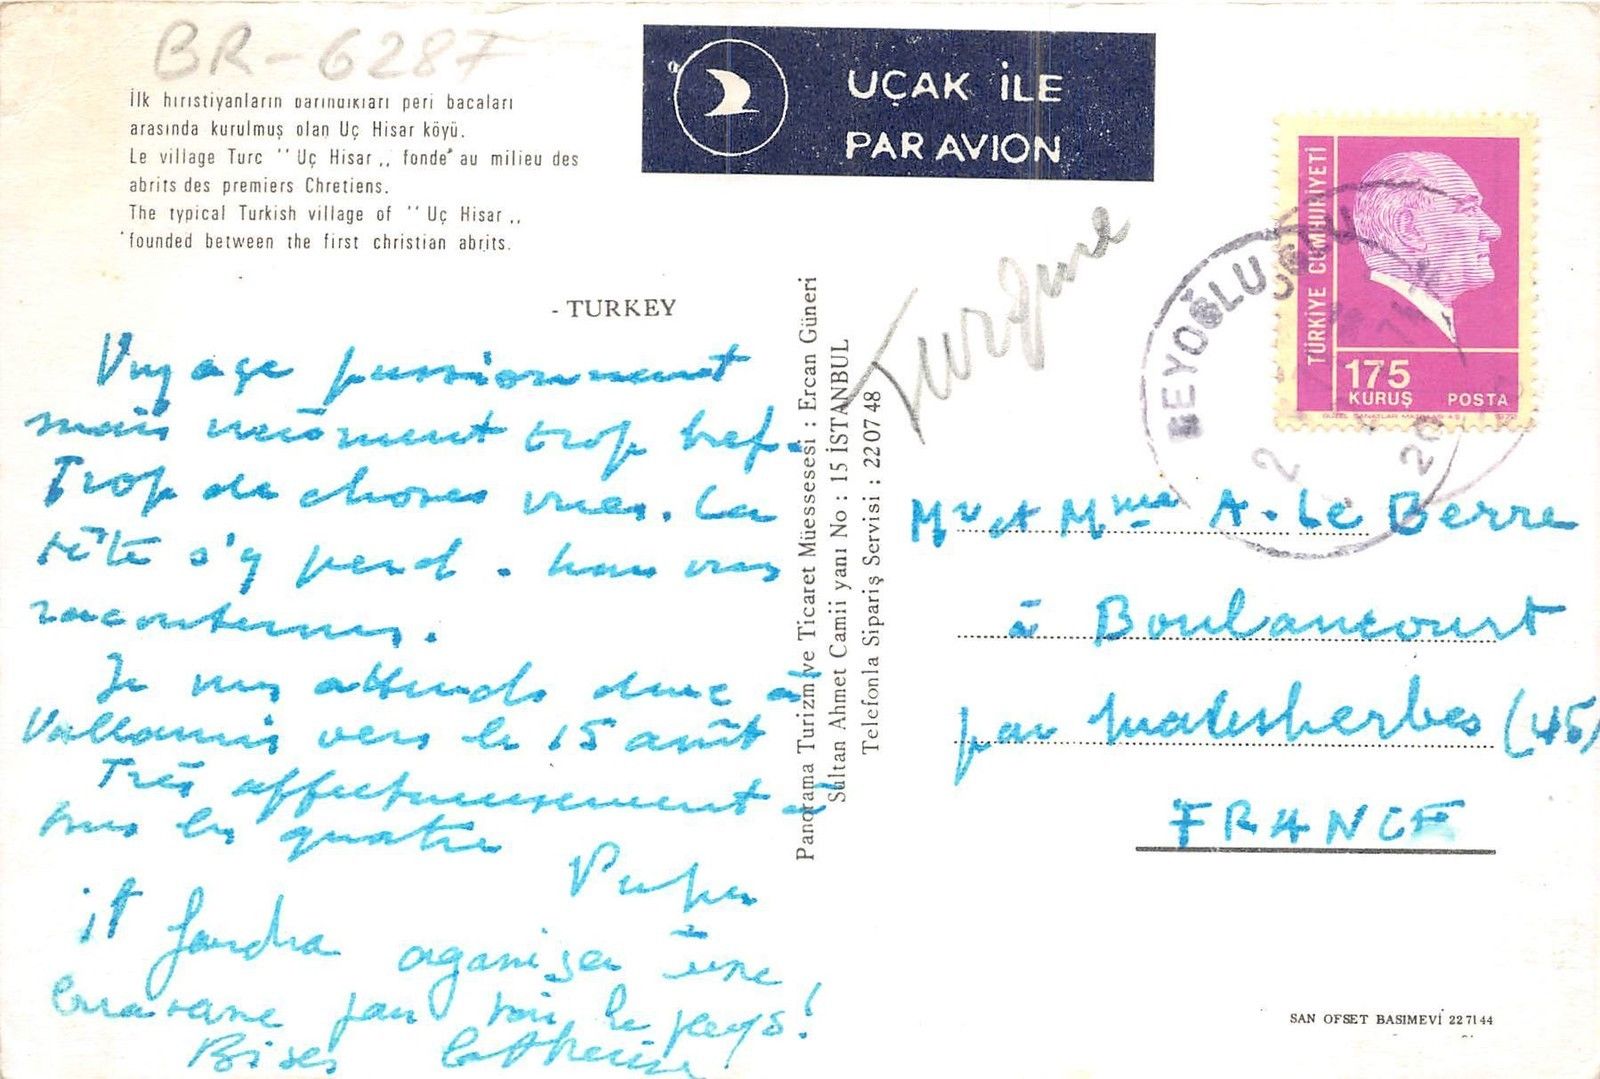 BR-6287
İlk hıristiyanların barındıkları peri bacaları
arasında kurulmuş olan Uç Hisar köyü.
Le village Turc "Uç Hisar,, fonde' au milieu des
abrits des premiers Chretiens.
The typical Turkish village of "Uç Hisar,,
founded between the first christian abrits.
- TURKEY
UÇAK İLE
PAR AVION
TÜRKİYE CUMHURİYETİ
175
KURUŞ POSTA
BEYOĞLU
Turquie
Voyage passionnant
mais vraiment trop bref.
Trop de choses vues. La
tête s'y perd. Nous vous
raconterons.
Je vous attends donc à
Vallauris vers le 15 août
Très affectueusement à
tous les quatre
il faudra organiser une
caravane pour voir le pays!
Bises Catherine
Panorama Turizm ve Ticaret Müessesesi : Ercan Güneri
Sultan Ahmet Camii yanı No : 15 İSTANBUL
Telefonla Sipariş Servisi : 22 07 48
Mr et Mme A. Le Berre
à Boulancourt
par Malesherbes (45)
FRANCE
SAN OFSET BASIMEVİ 22 71 44